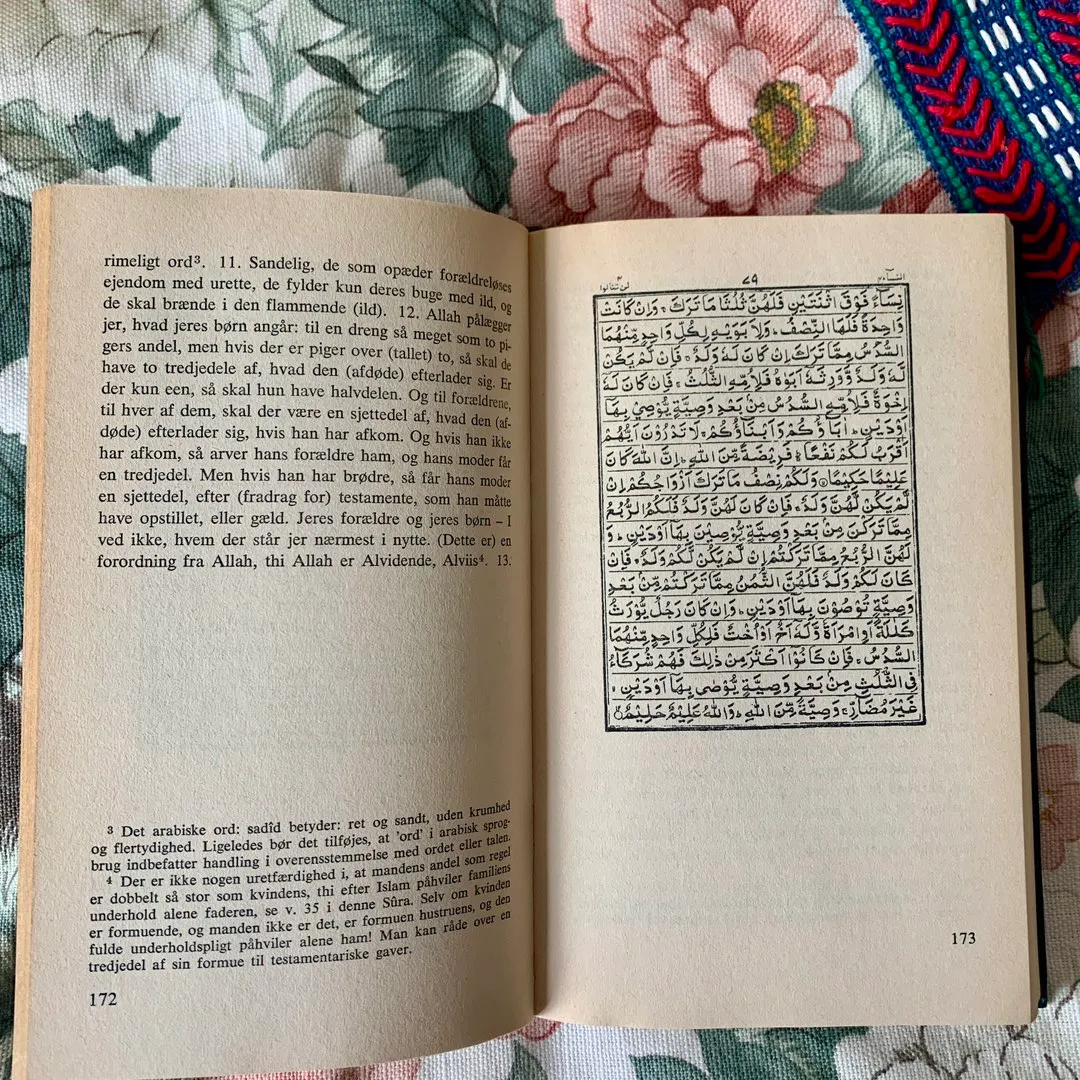 rimeligt ord³. 11. Sandelig, de som opæder forældreløses
ejendom med urette, de fylder kun deres buge med ild, og
de skal brænde i den flammende (ild). 12. Allah pålægger
jer, hvad jeres børn angår: til en dreng så meget som to pi-
gers andel, men hvis der er piger over (tallet) to, så skal de
have to tredjedele af, hvad den (afdøde) efterlader sig. Er
der kun een, så skal hun have halvdelen. Og til forældrene,
til hver af dem, skal der være en sjettedel af, hvad den (af-
døde) efterlader sig, hvis han har afkom. Og hvis han ikke
har afkom, så arver hans forældre ham, og hans moder får
en tredjedel. Men hvis han har brødre, så får hans moder
en sjettedel, efter (fradrag for) testamente, som han måtte
have opstillet, eller gæld. Jeres forældre og jeres børn – I
ved ikke, hvem der står jer nærmest i nytte. (Dette er) en
forordning fra Allah, thi Allah er Alvidende, Alviis⁴. 13.
³ Det arabiske ord: sadîd betyder: ret og sandt, uden krumhed
og flertydighed. Ligeledes bør det tilføjes, at 'ord' i arabisk sprog-
brug indbefatter handling i overensstemmelse med ordet eller talen.
⁴ Der er ikke nogen uretfærdighed i, at mandens andel som regel
er dobbelt så stor som kvindens, thi efter Islam påhviler familiens
underhold alene faderen, se v. 35 i denne Sûra. Selv om kvinden
er formuende, og manden ikke er det, er formuen hustruens, og den
fulde underholdspligt påhviler alene ham! Man kan råde over en
tredjedel af sin formue til testamentariske gaver.
172
النسآء ٤
٧٩
لن تنالوا ٤
نِسَآءً فَوْقَ اثْنَتَيْنِ فَلَهُنَّ ثُلُثَا مَا تَرَكَ ۚ وَاِنْ كَانَتْ
وَاحِدَةً فَلَهَا النِّصْفُ ؕ وَلِاَبَوَيْهِ لِكُلِّ وَاحِدٍ مِّنْهُمَا
السُّدُسُ مِمَّا تَرَكَ اِنْ كَانَ لَهٗ وَلَدٌ ۚ فَاِنْ لَّمْ يَكُنْ
لَّهٗ وَلَدٌ وَّوَرِثَهٗٓ اَبَوٰهُ فَلِاُمِّهِ الثُّلُثُ ۚ فَاِنْ كَانَ لَهٗٓ
اِخْوَةٌ فَلِاُمِّهِ السُّدُسُ مِنْۢ بَعْدِ وَصِيَّةٍ يُّوْصِيْ بِهَآ
اَوْ دَيْنٍ ؕ اٰبَآؤُكُمْ وَاَبْنَآؤُكُمْ ۚ لَا تَدْرُوْنَ اَيُّهُمْ
اَقْرَبُ لَكُمْ نَفْعًا ؕ فَرِيْضَةً مِّنَ اللّٰهِ ؕ اِنَّ اللّٰهَ كَانَ
عَلِيْمًا حَكِيْمًا ۝ وَلَكُمْ نِصْفُ مَا تَرَكَ اَزْوَاجُكُمْ اِنْ
لَّمْ يَكُنْ لَّهُنَّ وَلَدٌ ۚ فَاِنْ كَانَ لَهُنَّ وَلَدٌ فَلَكُمُ الرُّبُعُ
مِمَّا تَرَكْنَ مِنْۢ بَعْدِ وَصِيَّةٍ يُّوْصِيْنَ بِهَآ اَوْ دَيْنٍ ؕ وَ
لَهُنَّ الرُّبُعُ مِمَّا تَرَكْتُمْ اِنْ لَّمْ يَكُنْ لَّكُمْ وَلَدٌ ۚ فَاِنْ
كَانَ لَكُمْ وَلَدٌ فَلَهُنَّ الثُّمُنُ مِمَّا تَرَكْتُمْ مِّنْۢ بَعْدِ
وَصِيَّةٍ تُوْصُوْنَ بِهَآ اَوْ دَيْنٍ ؕ وَاِنْ كَانَ رَجُلٌ يُّوْرَثُ
كَلٰلَةً اَوِ امْرَاَةٌ وَّلَهٗٓ اَخٌ اَوْ اُخْتٌ فَلِكُلِّ وَاحِدٍ مِّنْهُمَا
السُّدُسُ ۚ فَاِنْ كَانُوْٓا اَكْثَرَ مِنْ ذٰلِكَ فَهُمْ شُرَكَآءُ
فِى الثُّلُثِ مِنْۢ بَعْدِ وَصِيَّةٍ يُّوْصٰى بِهَآ اَوْ دَيْنٍ ۙ
غَيْرَ مُضَآرٍّ ۚ وَصِيَّةً مِّنَ اللّٰهِ ؕ وَاللّٰهُ عَلِيْمٌ حَلِيْمٌ ۝
173